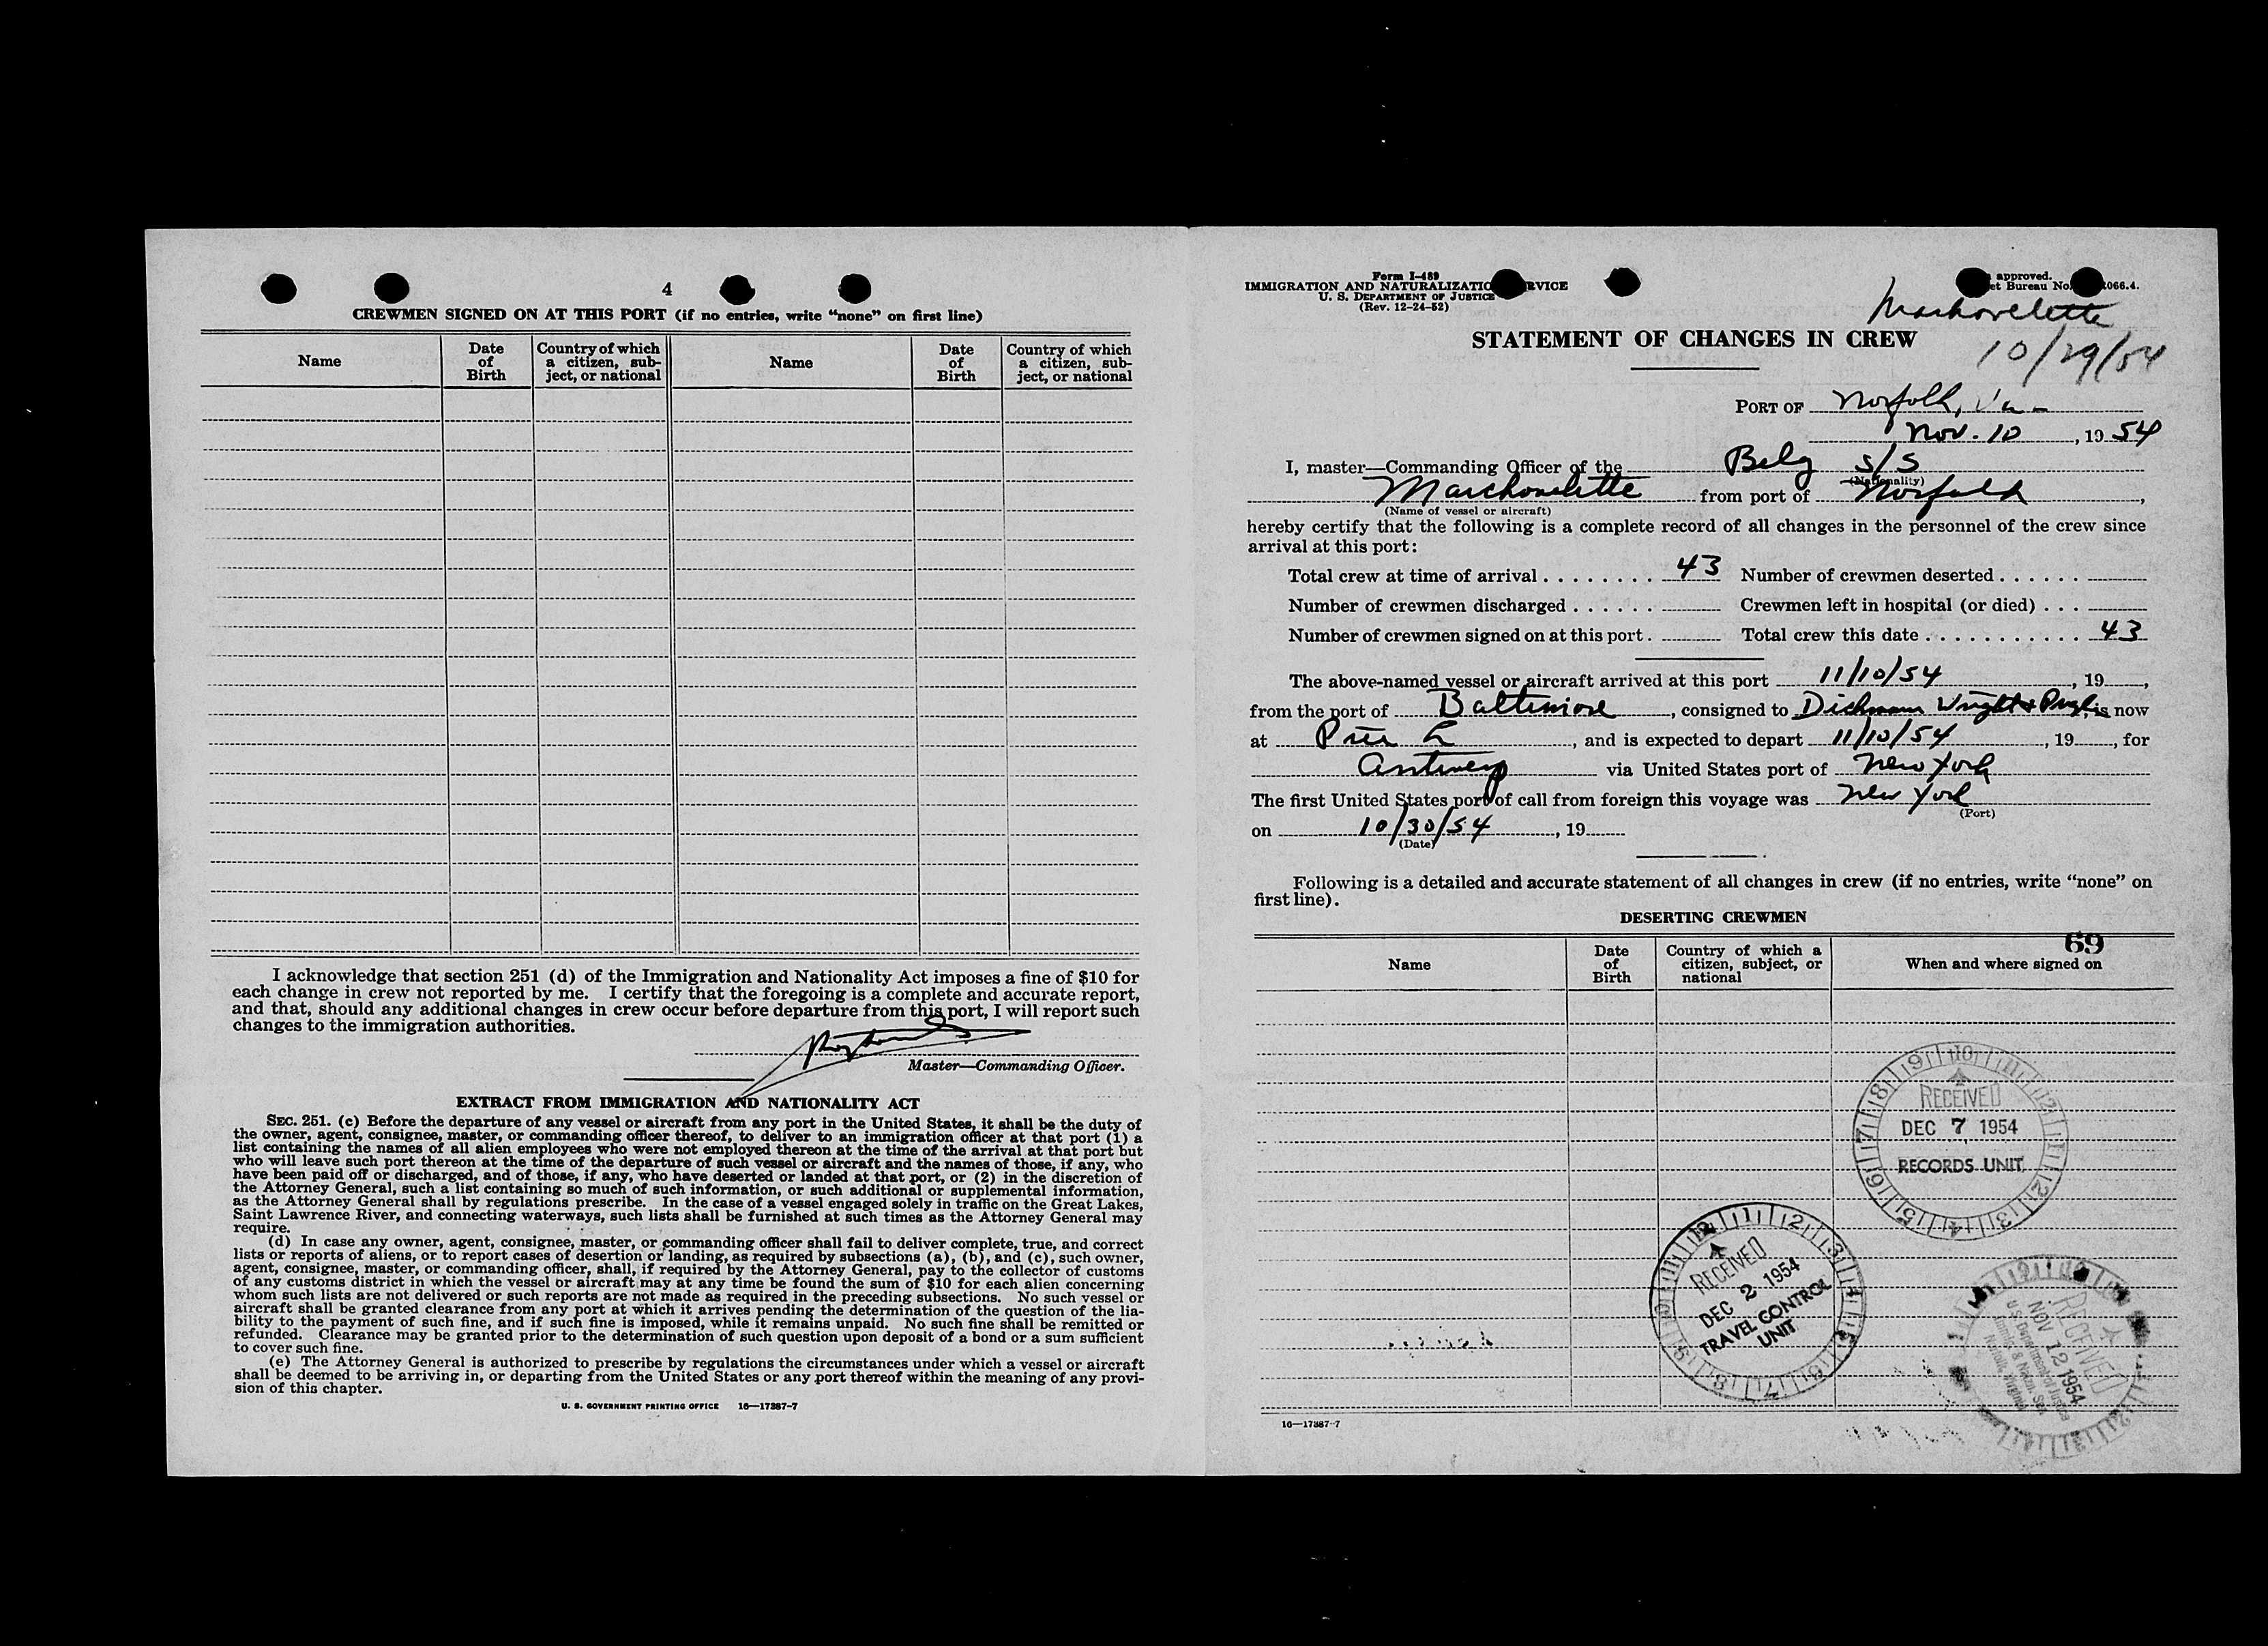 4
CREWMEN SIGNED ON AT THIS PORT (if no entries, write “none” on first line)
Name Date of Birth Country of which a citizen, sub- ject, or national Name Date of Birth Country of which a citizen, sub- ject, or national
I acknowledge that section 251 (d) of the Immigration and Nationality Act imposes a fine of $10 for
each change in crew not reported by me. I certify that the foregoing is a complete and accurate report,
and that, should any additional changes in crew occur before departure from this port, I will report such
changes to the immigration authorities.
Master—Commanding Officer.
EXTRACT FROM IMMIGRATION AND NATIONALITY ACT
SEC. 251. (c) Before the departure of any vessel or aircraft from any port in the United States, it shall be the duty of
the owner, agent, consignee, master, or commanding officer thereof, to deliver to an immigration officer at that port (1) a
list containing the names of all alien employees who were not employed thereon at the time of the arrival at that port but
who will leave such port thereon at the time of the departure of such vessel or aircraft and the names of those, if any, who
have been paid off or discharged, and of those, if any, who have deserted or landed at that port, or (2) in the discretion of
the Attorney General, such a list containing so much of such information, or such additional or supplemental information,
as the Attorney General shall by regulations prescribe. In the case of a vessel engaged solely in traffic on the Great Lakes,
Saint Lawrence River, and connecting waterways, such lists shall be furnished at such times as the Attorney General may
require.
(d) In case any owner, agent, consignee, master, or commanding officer shall fail to deliver complete, true, and correct
lists or reports of aliens, or to report cases of desertion or landing, as required by subsections (a), (b), and (c), such owner,
agent, consignee, master, or commanding officer, shall, if required by the Attorney General, pay to the collector of customs
of any customs district in which the vessel or aircraft may at any time be found the sum of $10 for each alien concerning
whom such lists are not delivered or such reports are not made as required in the preceding subsections. No such vessel or
aircraft shall be granted clearance from any port at which it arrives pending the determination of the question of the lia-
bility to the payment of such fine, and if such fine is imposed, while it remains unpaid. No such fine shall be remitted or
refunded. Clearance may be granted prior to the determination of such question upon deposit of a bond or a sum sufficient
to cover such fine.
(e) The Attorney General is authorized to prescribe by regulations the circumstances under which a vessel or aircraft
shall be deemed to be arriving in, or departing from the United States or any port thereof within the meaning of any provi-
sion of this chapter.
U. S. GOVERNMENT PRINTING OFFICE 16—17387-7
Form I-489
IMMIGRATION AND NATURALIZATIO RVICE
U. S. DEPARTMENT OF JUSTICE
(Rev. 12-24-52)
approved.
et Bureau No. 066.4.
Marchovelette
10/29/54
STATEMENT OF CHANGES IN CREW
PORT OF Norfolk, Va-
Nov. 10, 19 54
I, master—Commanding Officer of the Belg s/s
(Nationality)
Marchovelette from port of Norfolk,
(Name of vessel or aircraft)
hereby certify that the following is a complete record of all changes in the personnel of the crew since
arrival at this port:
Total crew at time of arrival 43 Number of crewmen deserted
Number of crewmen discharged Crewmen left in hospital (or died)
Number of crewmen signed on at this port. Total crew this date 43
The above-named vessel or aircraft arrived at this port 11/10/54, 19,
from the port of Baltimore, consigned to Dichmann Wright & Pugh, is now
at Pier L, and is expected to depart 11/10/54, 19, for
Antwerp via United States port of New York
The first United States port of call from foreign this voyage was New York
(Port)
on 10/30/54, 19
(Date)
Following is a detailed and accurate statement of all changes in crew (if no entries, write “none” on
first line).
DESERTING CREWMEN
69
Name Date of Birth Country of which a citizen, subject, or national When and where signed on
RECEIVED
DEC 7 1954
RECORDS UNIT
RECEIVED
DEC 2 1954
TRAVEL CONTROL
UNIT
RECEIVED
NOV 12 1954
U.S. Department of Justice
Immig. & Natzn. Ser.
Norfolk, Virginia
16—17387-7